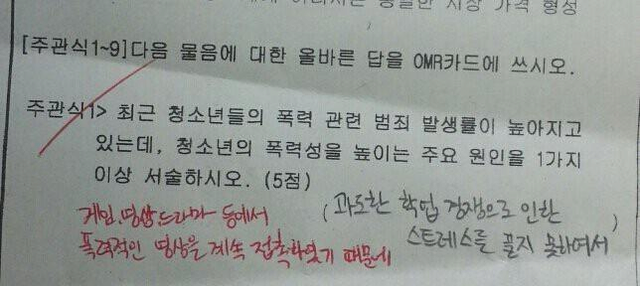 시장 가격 형성
[주관식1~9]다음 물음에 대한 올바른 답을 OMR카드에 쓰시오.
주관식1> 최근 청소년들의 폭력 관련 범죄 발생률이 높아지고
있는데, 청소년의 폭력성을 높이는 주요 원인을 1가지
이상 서술하시오. (5점)
게임, 영상, 드라마 등에서
폭력적인 영상을 계속 접촉하였기 때문에
(과도한 학업 경쟁으로 인한
스트레스를 풀지 못하여서)